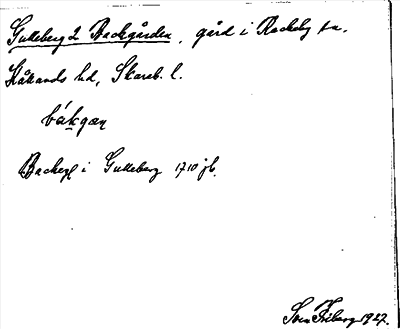 Gulleberg 2 Backgården, gård i Rackeby sn.
Kållands hd, Skarab. l.
bákgan
Backeg i Gulleberg 1710 jb.
Sven Friberg 1927.